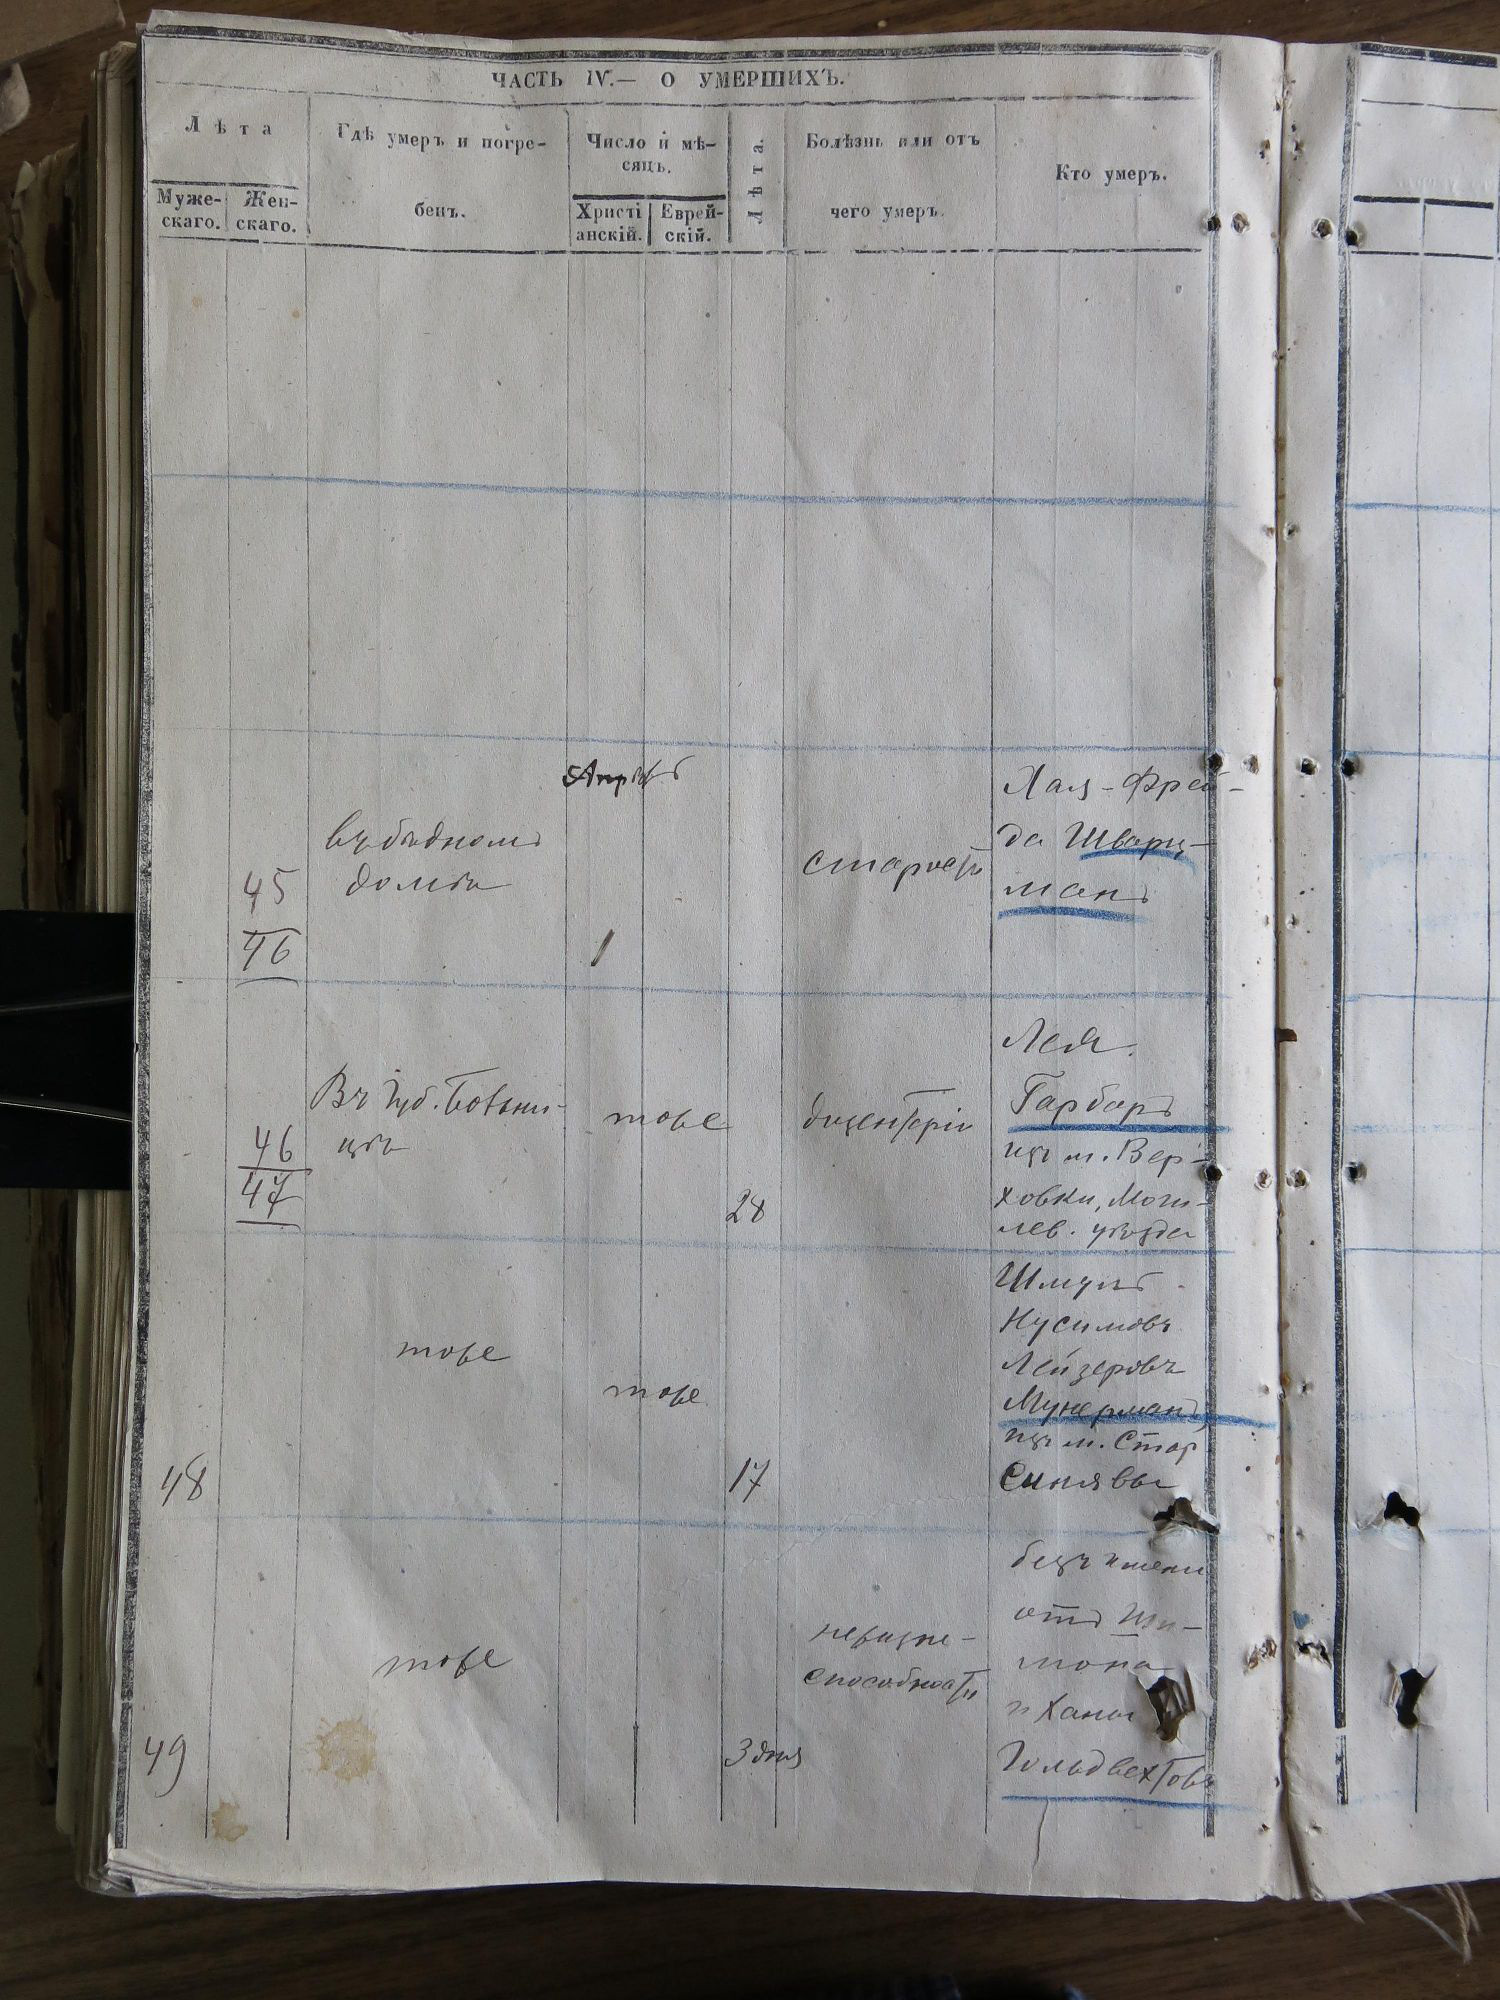 ЧАСТЬ IV.— О УМЕРШИХЪ.
Лѣта
Муже-
скаго.
Жен-
скаго.
Гдѣ умеръ и погре-
бенъ.
Число и мѣ-
сяцъ.
Христі
анскій.
Еврей-
скій.
Лѣта.
Болѣзнь или отъ
чего умеръ.
Кто умеръ.
45
46
въ бѣдномъ
домѣ
1
старость
Хая-Фрей-
да Шварц-
манъ
46
47
Въ Губ. Больни-
цѣ
тоже
28
дизентеріи
Лея
Гарбаръ
изъ м. Вер-
ховки, Моги-
лев. уѣзда
48
тоже
тоже
17
Шмуль
Нусимовъ
Лейзеровъ
Мукерманъ,
изъ м. Стар
Синявы
49
тоже
3 дня
нежизне-
способность
безъ имени
отъ Ши-
мона
и Ханы
Гольдвехтовъ